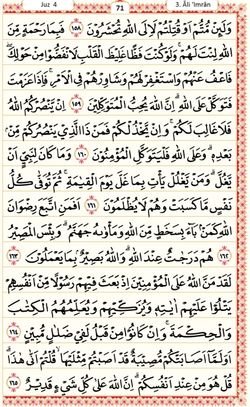 Juz 4 71 3. Âli 'Imrân
وَلَئِنْ مُّتُّمْ اَوْ قُتِلْتُمْ لَاِلَى اللّٰهِ تُحْشَرُوْنَ ١٥٨ فَبِمَا رَحْمَةٍ مِّنَ
اللّٰهِ لِنْتَ لَهُمْ ۚ وَلَوْ كُنْتَ فَظًّا غَلِيْظَ الْقَلْبِ لَانْفَضُّوْا مِنْ حَوْلِكَ ۖ
فَاعْفُ عَنْهُمْ وَاسْتَغْفِرْ لَهُمْ وَشَاوِرْهُمْ فِى الْاَمْرِ ۚ فَاِذَا عَزَمْتَ
فَتَوَكَّلْ عَلَى اللّٰهِ ۗ اِنَّ اللّٰهَ يُحِبُّ الْمُتَوَكِّلِيْنَ ١٥٩ اِنْ يَّنْصُرْكُمُ اللّٰهُ
فَلَا غَالِبَ لَكُمْ ۚ وَاِنْ يَّخْذُلْكُمْ فَمَنْ ذَا الَّذِيْ يَنْصُرُكُمْ مِّنْۢ
بَعْدِهٖ ۗ وَعَلَى اللّٰهِ فَلْيَتَوَكَّلِ الْمُؤْمِنُوْنَ ١٦٠ وَمَا كَانَ لِنَبِيٍّ اَنْ
يَّغُلَّ ۗ وَمَنْ يَّغْلُلْ يَأْتِ بِمَا غَلَّ يَوْمَ الْقِيٰمَةِ ۚ ثُمَّ تُوَفّٰى كُلُّ
نَفْسٍ مَّا كَسَبَتْ وَهُمْ لَا يُظْلَمُوْنَ ١٦١ اَفَمَنِ اتَّبَعَ رِضْوَانَ
اللّٰهِ كَمَنْۢ بَآءَ بِسَخَطٍ مِّنَ اللّٰهِ وَمَأْوٰىهُ جَهَنَّمُ ۗ وَبِئْسَ الْمَصِيْرُ
١٦٢ هُمْ دَرَجٰتٌ عِنْدَ اللّٰهِ ۗ وَاللّٰهُ بَصِيْرٌۢ بِمَا يَعْمَلُوْنَ ١٦٣
لَقَدْ مَنَّ اللّٰهُ عَلَى الْمُؤْمِنِيْنَ اِذْ بَعَثَ فِيْهِمْ رَسُوْلًا مِّنْ اَنْفُسِهِمْ
يَتْلُوْا عَلَيْهِمْ اٰيٰتِهٖ وَيُزَكِّيْهِمْ وَيُعَلِّمُهُمُ الْكِتٰبَ
وَالْحِكْمَةَ ۚ وَاِنْ كَانُوْا مِنْ قَبْلُ لَفِيْ ضَلٰلٍ مُّبِيْنٍ ١٦٤
اَوَلَمَّآ اَصَابَتْكُمْ مُّصِيْبَةٌ قَدْ اَصَبْتُمْ مِّثْلَيْهَا ۙ قُلْتُمْ اَنّٰى هٰذَا ۗ
قُلْ هُوَ مِنْ عِنْدِ اَنْفُسِكُمْ ۗ اِنَّ اللّٰهَ عَلٰى كُلِّ شَيْءٍ قَدِيْرٌ ١٦٥